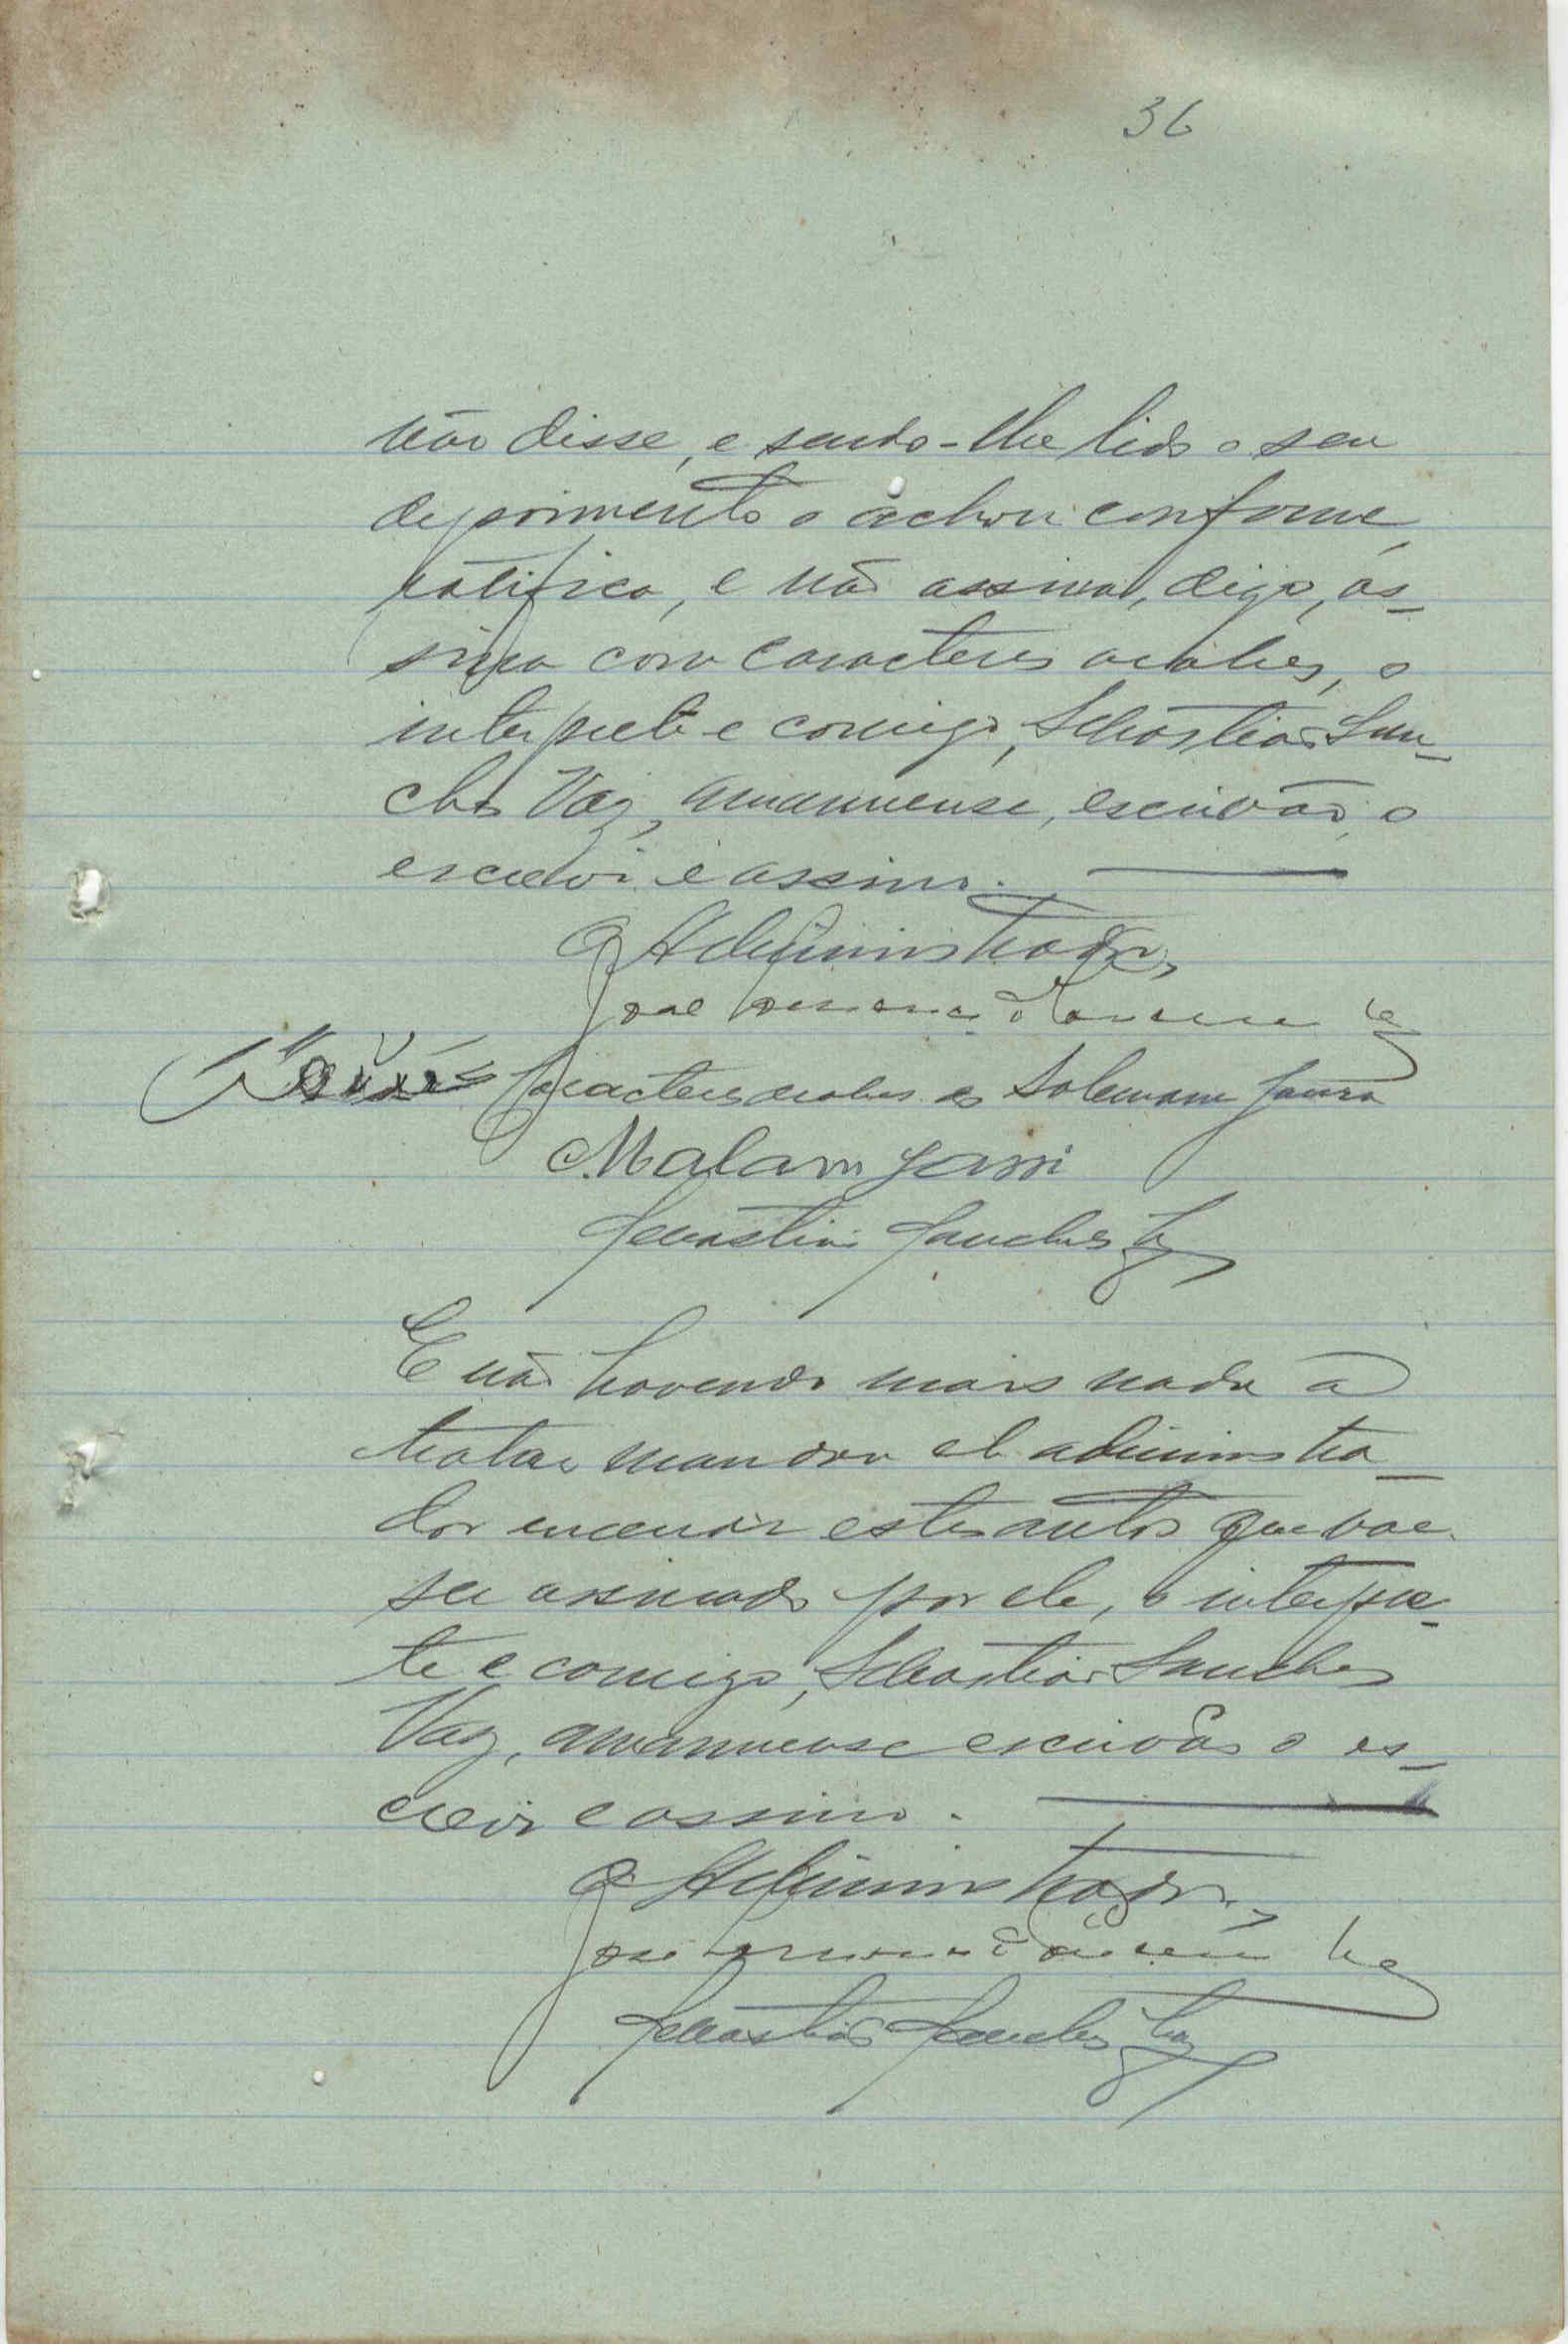 36
não disse, e sendo-lhe lido o seu
depoimento o achou conforme,
ratifica, e não assina, digo, as-
sina com caracteres arabes, o
interprete e comigo, Sebastião San-
ches Vaz, amanuense, escrivão, o
escrevi e assino.
O Administrador,
José
Caracteres arabes de Solemane Jaura
Malam Jassi
Sebastião Sanches Vaz
E não havendo mais nada a
tratar mandou el administra-
dor encerrar estes autos que vae
ser assinado por ele, o interpre-
te e comigo, Sebastião Sanches
Vaz, amanuense escrivão o es-
crevi e assino.
O Administrador,
José
Sebastião Sanches Vaz